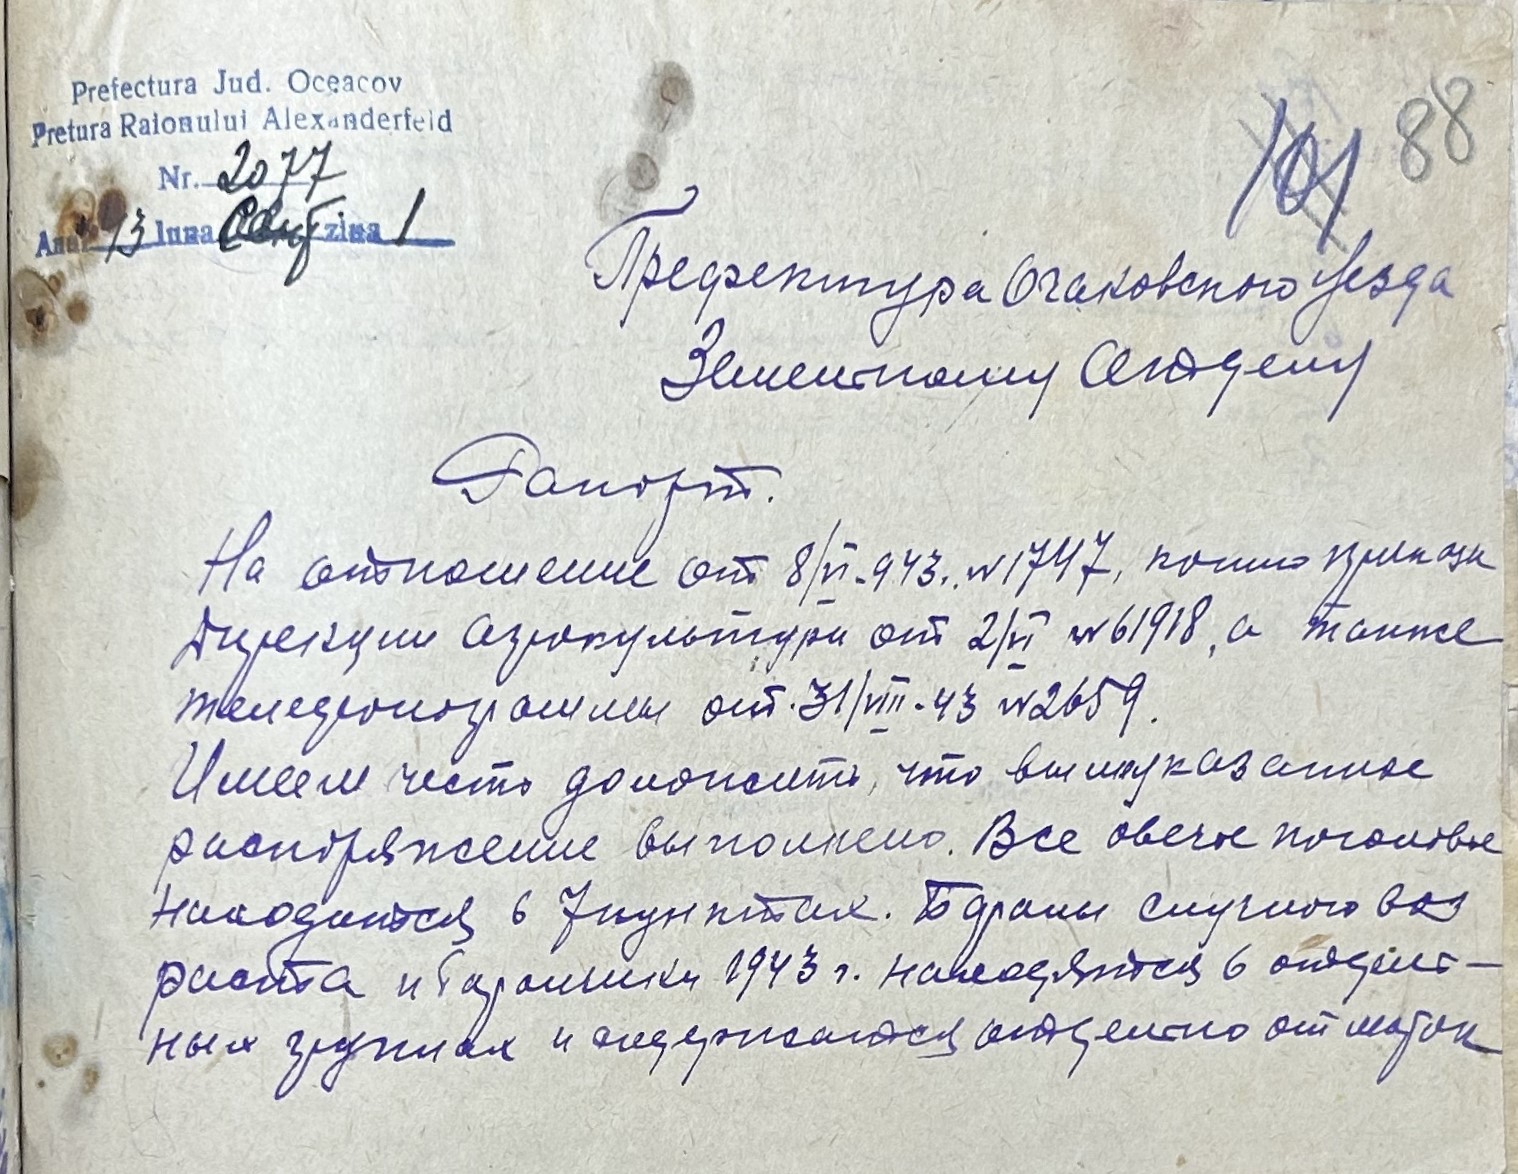 Prefectura Jud. Oceacov
Pretura Raionului Alexanderfeld
Nr. 2077
Anul 43 luna Сент ziua 1
101 88
Префектура Очаковского Уезда
Земельному Отделу
Рапорт.
На отношение от 8/VI-943. №1747, копию приказа
Дирекции агрокультуры от 2/VI №61918, а также
телефонограммы от 31/VIII-43 №2659.
Имеем честь доложить, что вышеуказанное
распоряжение выполнено. Все овечье поголовье
находится в 7 пунктах. Бараны случного воз
раста и баранчики 1943 г. находятся в отдель-
ных группах и содержатся отдельно от маток